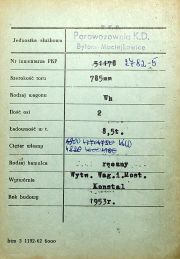 P.K.P.
Jednostka służbowa Parowozownia K.D.
Bytom Maciejkowice
Nr inwentarza PKP 51478 2782-S
Szerokość toru 785mm
Rodzaj wagonu Wh
Ilość osi 2
Ładowność w t. 8,5t.
Ciężar własny
Rodzaj hamulca ręczny
Wytwórnia Wytw. Wag. i Most.
Konstal
Rok budowy 1953r.